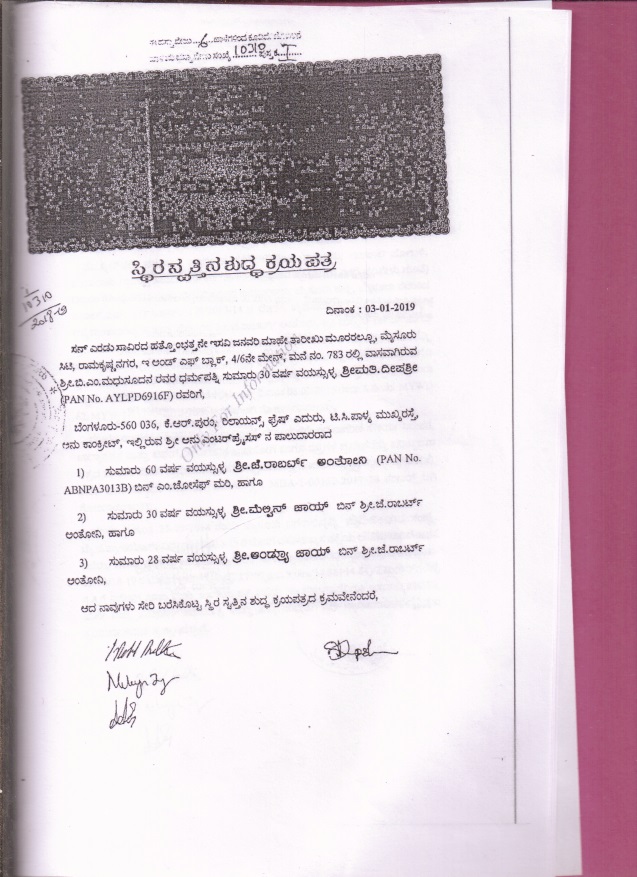 ಈ ದಸ್ತಾವೇಜು...6...ಹಾಳೆಗಳಿಂದ ಕೂಡಿದೆ
ಸಂಖ್ಯೆ 10310 ಪುಸ್ತಕ I
ಸ್ಥಿರ ಸ್ವತ್ತಿನ ಶುದ್ಧ ಕ್ರಯ ಪತ್ರ
10310
2018-19
ದಿನಾಂಕ : 03-01-2019
ಸನ್ ಎರಡು ಸಾವಿರದ ಹತ್ತೊಂಭತ್ತನೇ ಇಸವಿ ಜನವರಿ ಮಾಹೇ ತಾರೀಖು ಮೂರರಲ್ಲೂ, ಮೈಸೂರು
ಸಿಟಿ, ರಾಮಕೃಷ್ಣನಗರ, ಇ ಅಂಡ್ ಎಫ್ ಬ್ಲಾಕ್, 4/6ನೇ ಮೇನ್, ಮನೆ ನಂ. 783 ರಲ್ಲಿ ವಾಸವಾಗಿರುವ
ಶ್ರೀ.ಬಿ.ಎಂ.ಮಧುಸೂದನ ರವರ ಧರ್ಮಪತ್ನಿ ಸುಮಾರು 30 ವರ್ಷ ವಯಸ್ಸುಳ್ಳ ಶ್ರೀಮತಿ.ದೀಪಶ್ರೀ
(PAN No. AYLPD6916F) ರವರಿಗೆ,
Only For Information
ಬೆಂಗಳೂರು-560 036, ಕೆ.ಆರ್.ಪುರಂ, ರಿಲಾಯನ್ಸ್ ಫ್ರೆಷ್ ಎದುರು, ಟಿ.ಸಿ.ಪಾಳ್ಯ ಮುಖ್ಯರಸ್ತೆ,
ಅನು ಕಾಂಕ್ರೀಟ್, ಇಲ್ಲಿರುವ ಶ್ರೀ ಅನು ಎಂಟರ್‌ಪ್ರೈಸಸ್ ನ ಪಾಲುದಾರರಾದ
1) ಸುಮಾರು 60 ವರ್ಷ ವಯಸ್ಸುಳ್ಳ ಶ್ರೀ.ಜೆ.ರಾಬರ್ಟ್ ಅಂತೋನಿ (PAN No.
ABNPA3013B) ಬಿನ್ ಎಂ.ಜೋಸೆಫ್ ಮರಿ, ಹಾಗೂ
2) ಸುಮಾರು 30 ವರ್ಷ ವಯಸ್ಸುಳ್ಳ ಶ್ರೀ.ಮೆಲ್ವಿನ್ ಜಾಯ್ ಬಿನ್ ಶ್ರೀ.ಜೆ.ರಾಬರ್ಟ್
ಅಂತೋನಿ, ಹಾಗೂ
3) ಸುಮಾರು 28 ವರ್ಷ ವಯಸ್ಸುಳ್ಳ ಶ್ರೀ.ಆಂಡ್ರ್ಯೂ ಜಾಯ್ ಬಿನ್ ಶ್ರೀ.ಜೆ.ರಾಬರ್ಟ್
ಅಂತೋನಿ,
ಆದ ನಾವುಗಳು ಸೇರಿ ಬರೆಸಿಕೊಟ್ಟ ಸ್ಥಿರ ಸ್ವತ್ತಿನ ಶುದ್ಧ ಕ್ರಯಪತ್ರದ ಕ್ರಮವೇನೆಂದರೆ,